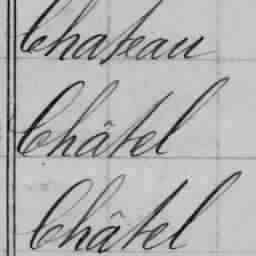 Chateau
Châtel
Châtel